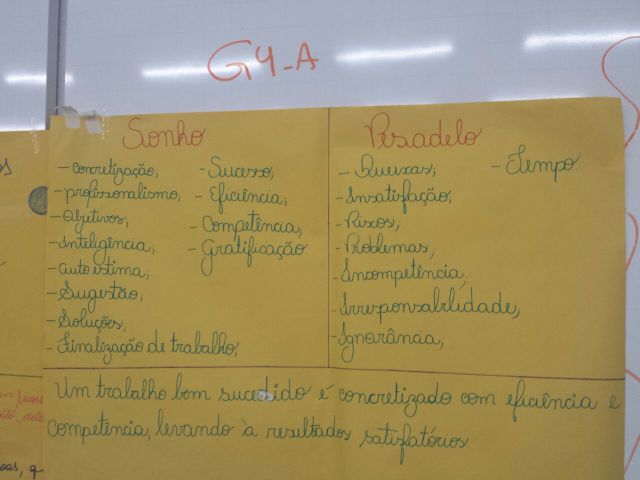 G4-A
Sonho
- concretização;
- profissonalismo;
- Objetivos;
- Inteligência;
- auto estima;
- Sugestão;
- Soluções;
- Finalização de trabalho;
- Sucesso;
- Eficiência;
- Competência;
- Gratificação
Pesadelo
- Queixas;
- Insatisfação;
- Riscos;
- Problemas;
- Incompetência;
- Irresponsabilidade;
- Ignorância;
- Tempo.
Um trabalho bem sucedido é concretizado com eficiência e
competência, levando à resultados satisfatórios.